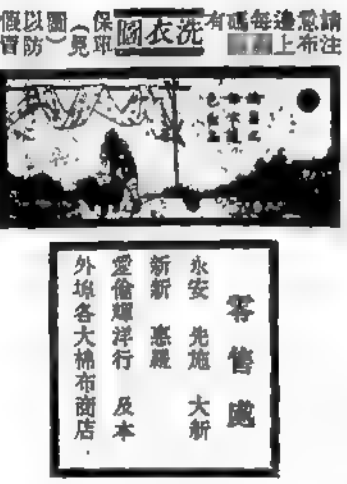 請注
意布
邊上
每碼
有
洗衣圖
保印
(見
圖)
以防
假冒
零售處
永安 先施 大新
新新 惠羅
愛倫輝洋行 及本
外埠各大棉布商店.